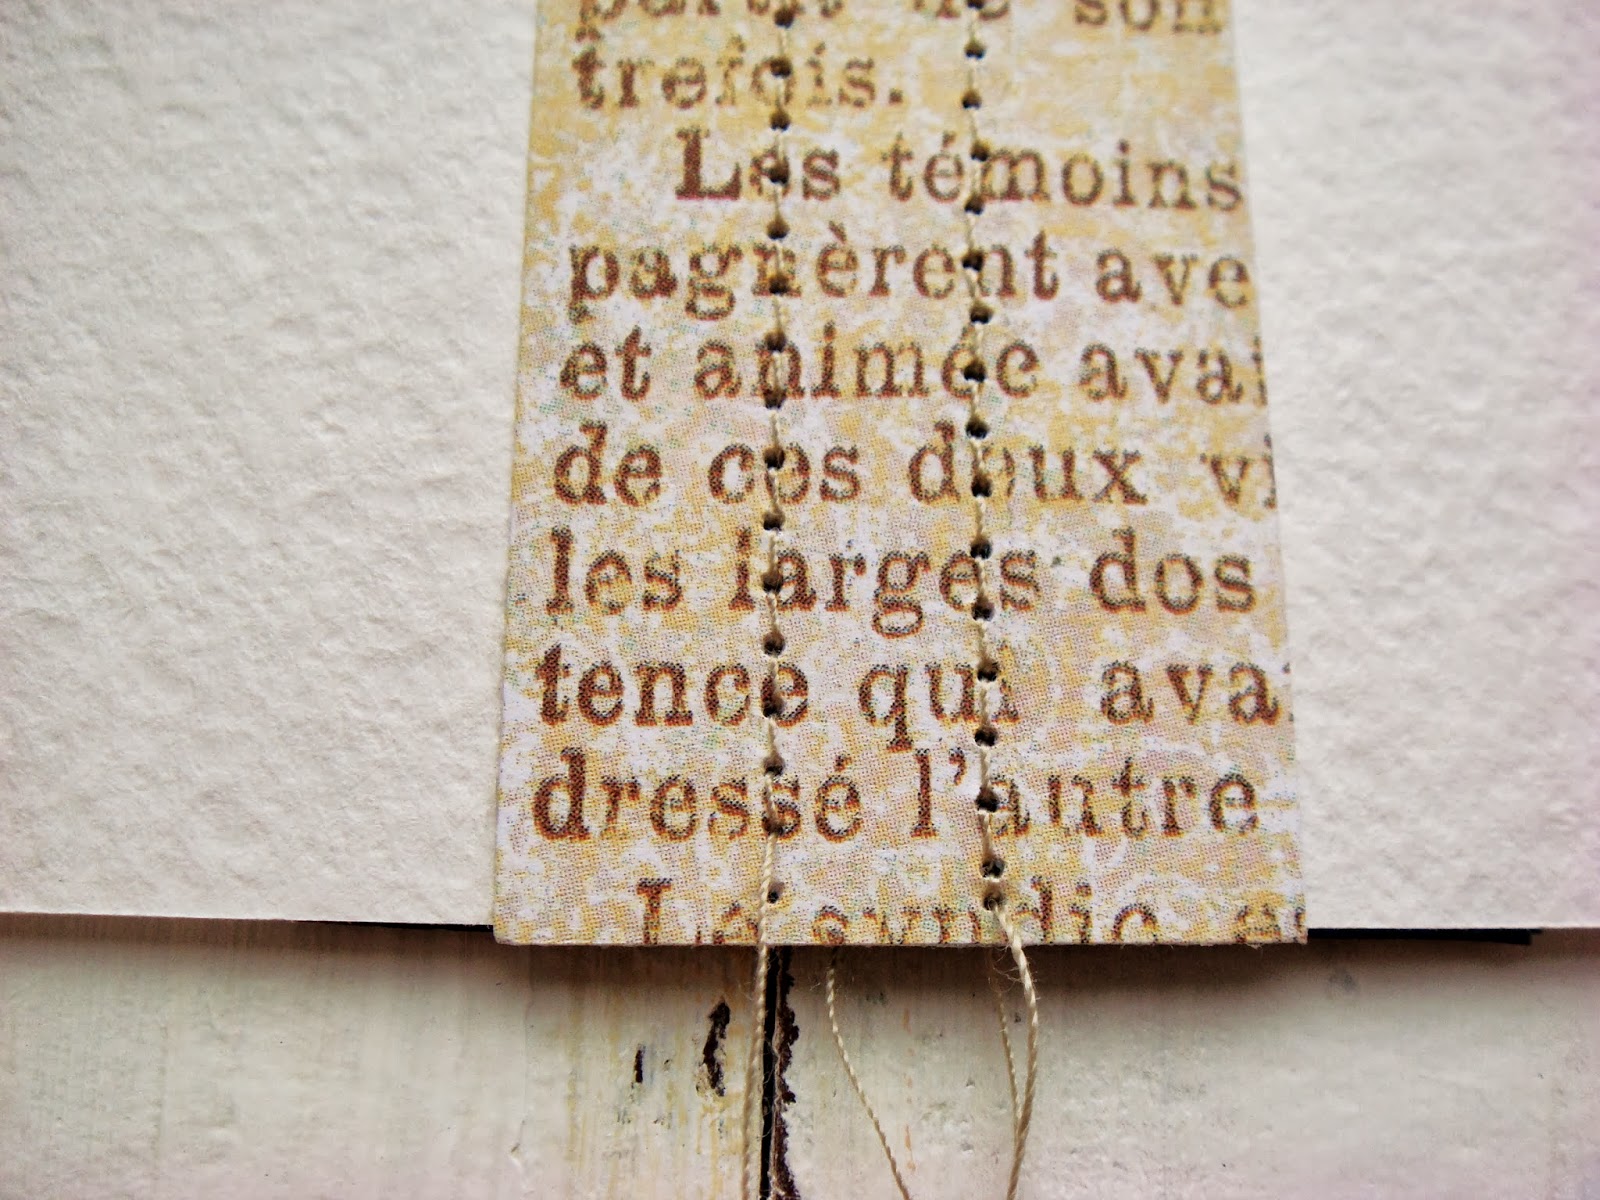 partit de son
trefois.
Les témoins
pagnèrent ave
et animée avai
de ces deux vi
les larges dos
tence qui avai
dressé l'autre
Le syndic